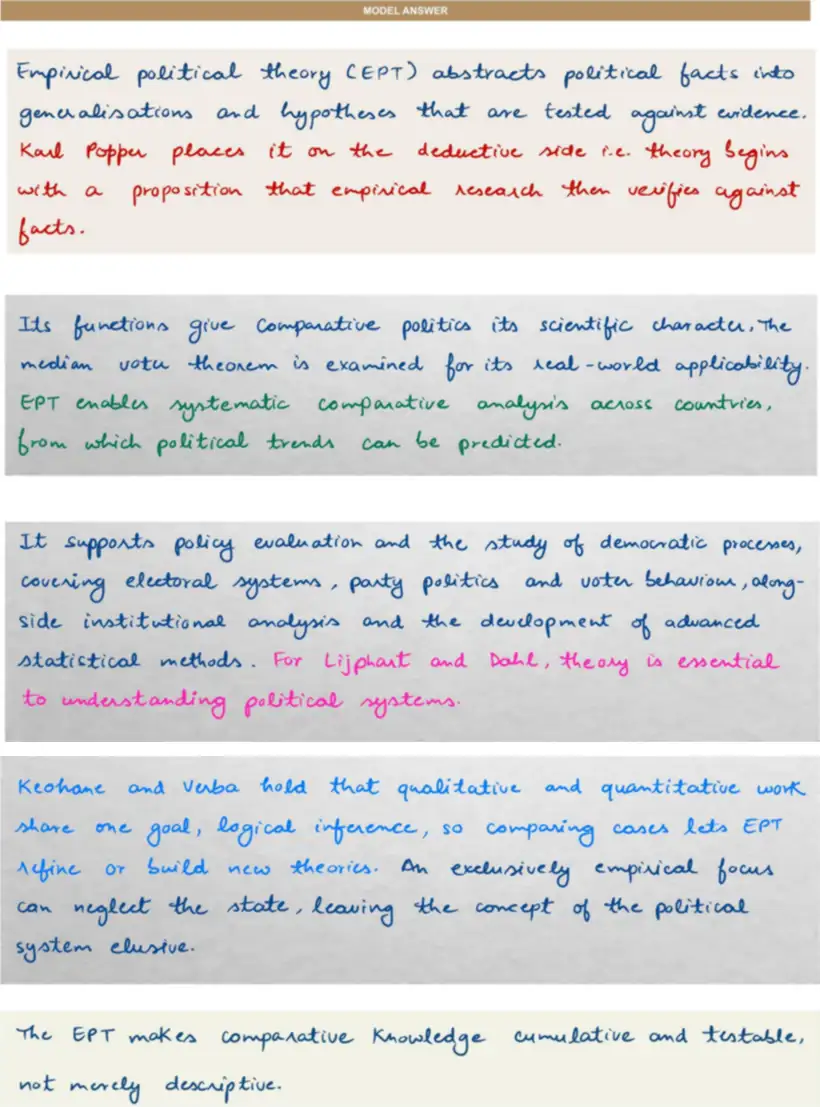 MODEL ANSWER
Empirical political theory (EPT) abstracts political facts into
generalisations and hypotheses that are tested against evidence.
Karl Popper places it on the deductive side i.e. theory begins
with a proposition that empirical research then verifies against
facts.
Its functions give comparative politics its scientific character. The
median voter theorem is examined for its real-world applicability.
EPT enables systematic comparative analysis across countries,
from which political trends can be predicted.
It supports policy evaluation and the study of democratic processes,
covering electoral systems, party politics and voter behaviour, along-
side institutional analysis and the development of advanced
statistical methods. For Lijphart and Dahl, theory is essential
to understanding political systems.
Keohane and Verba hold that qualitative and quantitative work
share one goal, logical inference, so comparing cases lets EPT
refine or build new theories. An exclusively empirical focus
can neglect the state, leaving the concept of the political
system elusive.
The EPT makes comparative Knowledge cumulative and testable,
not merely descriptive.